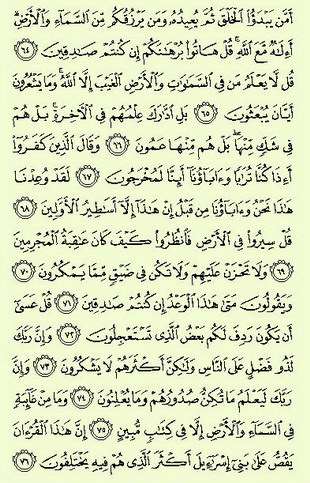 أَمَّن يَبْدَؤُا۟ ٱلْخَلْقَ ثُمَّ يُعِيدُهُۥ وَمَن يَرْزُقُكُم مِّنَ ٱلسَّمَآءِ وَٱلْأَرْضِ ۗ
أَءِلَـٰهٌ مَّعَ ٱللَّهِ ۚ قُلْ هَاتُوا۟ بُرْهَـٰنَكُمْ إِن كُنتُمْ صَـٰدِقِينَ ٦٤
قُل لَّا يَعْلَمُ مَن فِى ٱلسَّمَـٰوَٰتِ وَٱلْأَرْضِ ٱلْغَيْبَ إِلَّا ٱللَّهُ ۚ وَمَا يَشْعُرُونَ
أَيَّانَ يُبْعَثُونَ ٦٥ بَلِ ٱدَّٰرَكَ عِلْمُهُمْ فِى ٱلْـَٔاخِرَةِ ۚ بَلْ هُمْ
فِى شَكٍّ مِّنْهَا ۖ بَلْ هُم مِّنْهَا عَمُونَ ٦٦ وَقَالَ ٱلَّذِينَ كَفَرُوٓا۟
أَءِذَا كُنَّا تُرَٰبًا وَءَابَآؤُنَآ أَئِنَّا لَمُخْرَجُونَ ٦٧ لَقَدْ وُعِدْنَا
هَـٰذَا نَحْنُ وَءَابَآؤُنَا مِن قَبْلُ إِنْ هَـٰذَآ إِلَّآ أَسَـٰطِيرُ ٱلْأَوَّلِينَ ٦٨
قُلْ سِيرُوا۟ فِى ٱلْأَرْضِ فَٱنظُرُوا۟ كَيْفَ كَانَ عَـٰقِبَةُ ٱلْمُجْرِمِينَ
٦٩ وَلَا تَحْزَنْ عَلَيْهِمْ وَلَا تَكُن فِى ضَيْقٍ مِّمَّا يَمْكُرُونَ ٧٠
وَيَقُولُونَ مَتَىٰ هَـٰذَا ٱلْوَعْدُ إِن كُنتُمْ صَـٰدِقِينَ ٧١ قُلْ عَسَىٰٓ
أَن يَكُونَ رَدِفَ لَكُم بَعْضُ ٱلَّذِى تَسْتَعْجِلُونَ ٧٢ وَإِنَّ رَبَّكَ
لَذُو فَضْلٍ عَلَى ٱلنَّاسِ وَلَـٰكِنَّ أَكْثَرَهُمْ لَا يَشْكُرُونَ ٧٣ وَإِنَّ
رَبَّكَ لَيَعْلَمُ مَا تُكِنُّ صُدُورُهُمْ وَمَا يُعْلِنُونَ ٧٤ وَمَا مِنْ غَآئِبَةٍ
فِى ٱلسَّمَآءِ وَٱلْأَرْضِ إِلَّا فِى كِتَـٰبٍ مُّبِينٍ ٧٥ إِنَّ هَـٰذَا ٱلْقُرْءَانَ
يَقُصُّ عَلَىٰ بَنِىٓ إِسْرَٰٓءِيلَ أَكْثَرَ ٱلَّذِى هُمْ فِيهِ يَخْتَلِفُونَ ٧٦